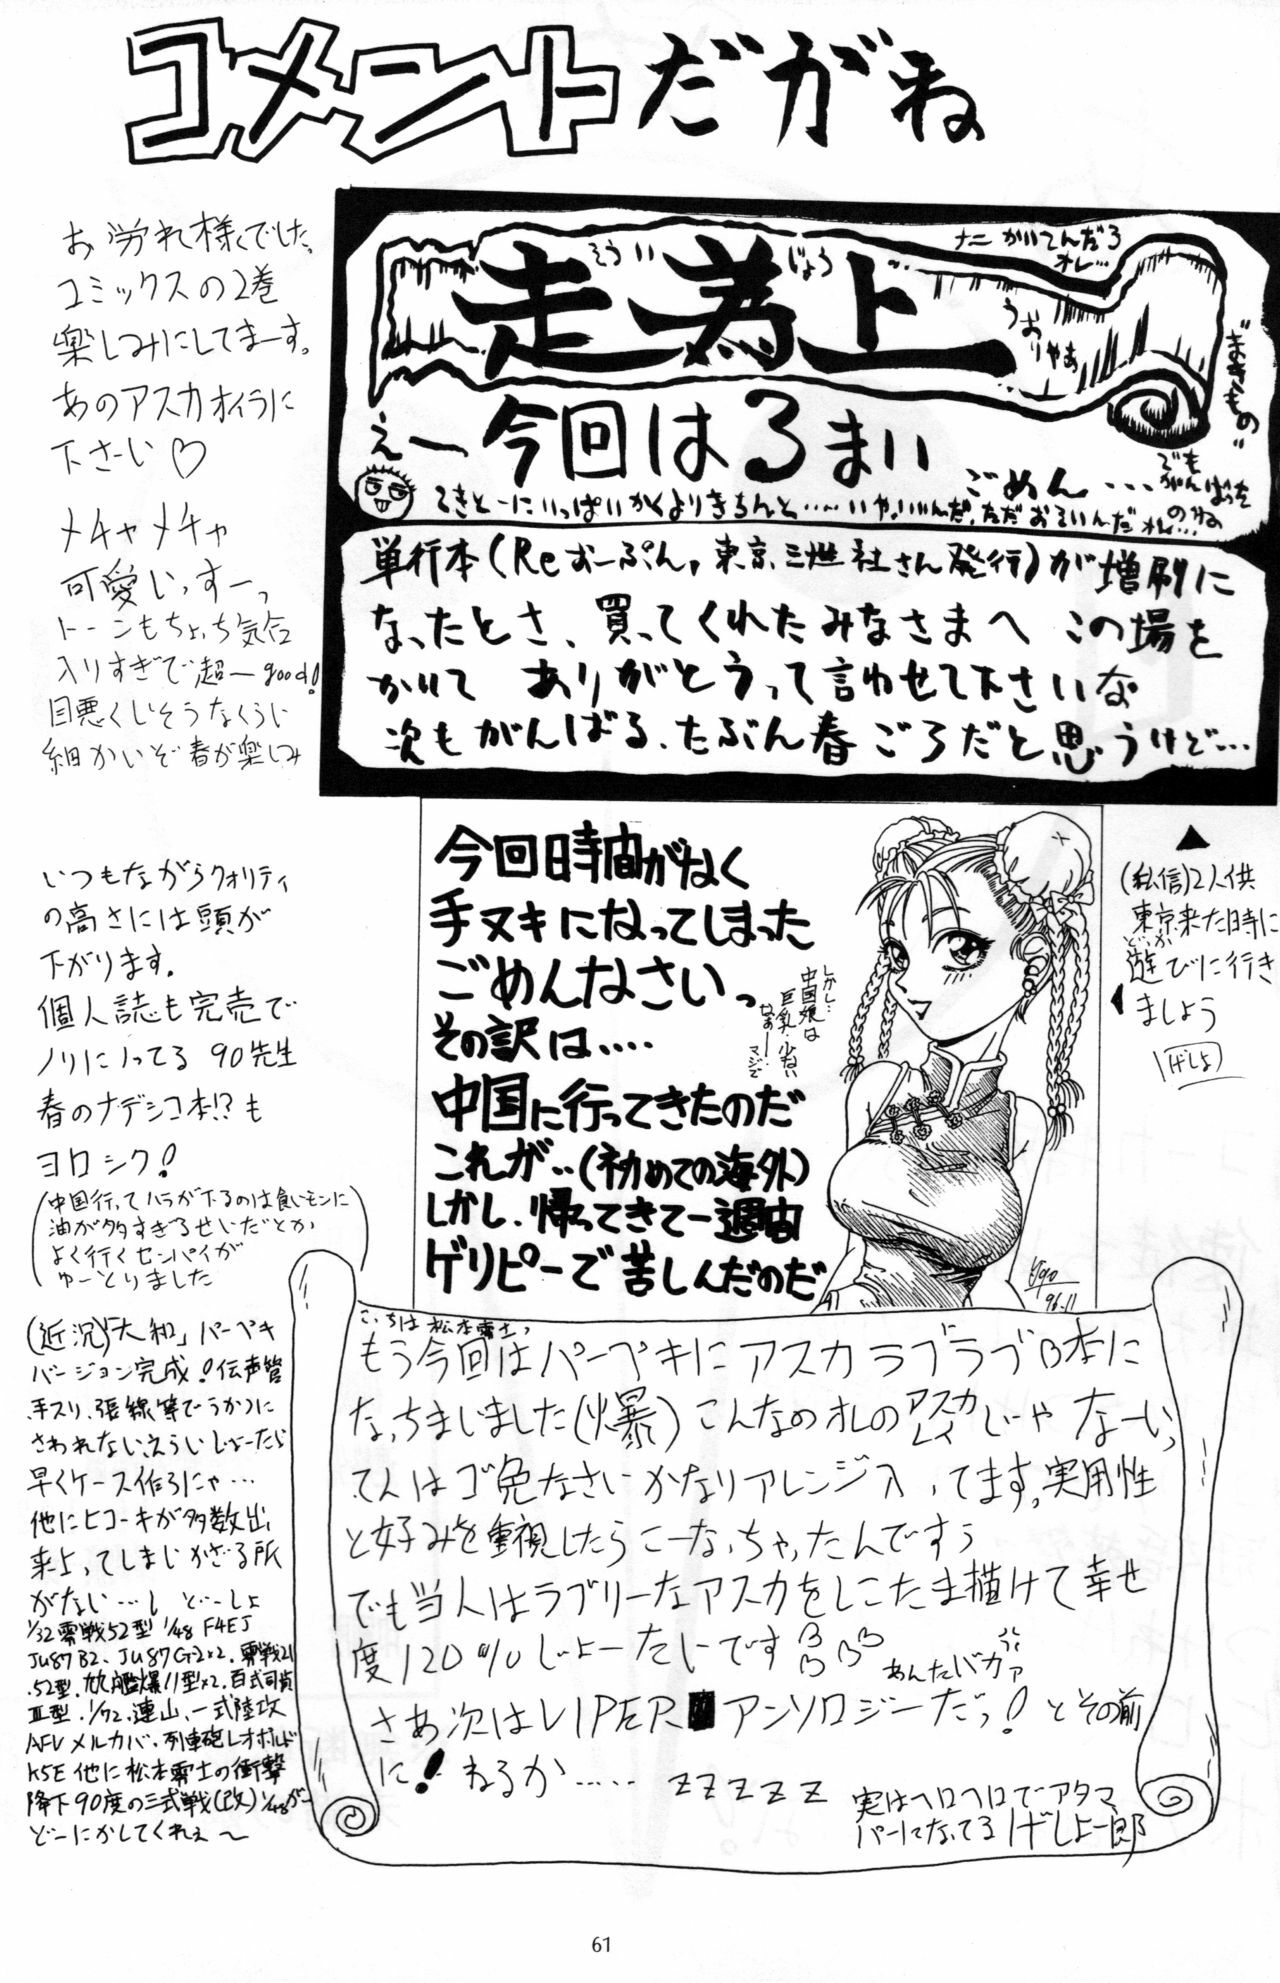 コメントだがね
お労れ様でした。
コミックスの2巻
楽しみにしてまーす。
あのアスカオイラに
下さーい♡
メチャメチャ
可愛いっすーっ
トーンもちょっち気合
入りすぎで超ーgood!
目悪くしそうなくらい
細かいぞ春が楽しみ
走為上
そうい じょう
ナニかいてんだろ
オレ…
うおりゃあ
"まきもの"
えー今回はるまい
ごめん…
でも
がんばった
のね
てきとーにいっぱいかくよりきちんと……いや、いいんだ、ただおそいんだオレ…
単行本(Reおーぷん,東京三世社さん発行)が増刷に
なったとさ、買ってくれたみなさまへ この場を
かりて ありがとうって言わせて下さいな
次もがんばる、たぶん春ごろだと思うけど…
いつもながらクオリティ
の高さには頭が
下がります。
個人誌も完売で
ノリにノってる 90先生
春のナデシコ本!?も
ヨロシク!
(中国行ってハラが下るのは食いモンに
油が多すぎるせいだとか
よく行くセンパイが
ゆーとりました)
今回時間がなく
手ヌキになってしまった
ごめんなさいっ
その訳は‥‥
中国に行ってきたのだ
これが‥(初めての海外)
しかし、帰ってきて一週間
ゲリピーで苦しんだのだ
しかし…
中国娘は
巨乳少ない
なぁー…
マジで
96.11
▲
(私信)2人供
東京来た時に
どっか
遊びに行き
ましょう
げしょ
(近況)「大和」パーペキ
バージョン完成!伝声管
手スリ、張線等でうかつに
さわれない、えらいしょーたら
早くケース作ろにゃ…
他にヒコーキが多数出
来上ってしまいかざる所
がない…し どーしよ
1/32零戦52型 1/48 F4EJ
JU87B2、JU87G2×2、零戦21
.52型、九九艦爆11型×2、百式司偵
Ⅲ型、1/72、連山、一式陸攻
AFVメルカバ、列車砲レオポルド
K5E他に松本零士の衝撃
降下90度の三式戦(改)1/48が…
どーにかしてくれぇ〜
こっちは松本零士っ
もう今回はパーペキにアスカラブラブB本に
なっちまいました(爆)こんなのオレのアスカ
レイじゃなーいっ
て人はゴ免なさいかなりアレンジ入ってます。実用性
と好みを重視したらこーなっちゃったんですぅ
でも当人はラブリーなアスカをしこたま描けて幸せ
度120%じょーたいです
あんたバカァ
さあ次はVIPER アンソロジーだっ!とその前
に!ねるか‥‥‥ zzzzz
実はヘロヘロでアタマ
パーになってるげしょ一郎
61